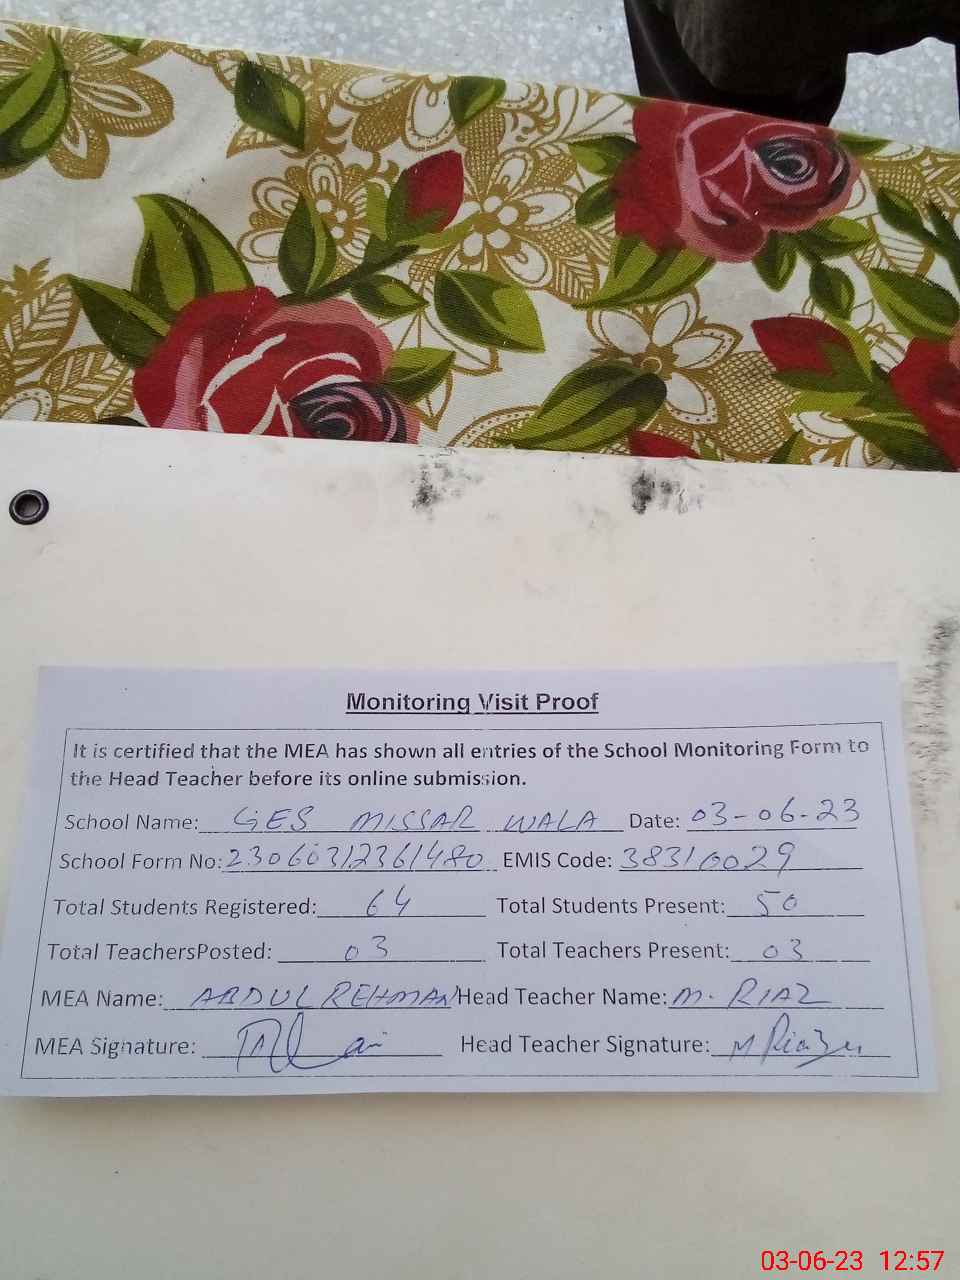 Monitoring Visit Proof
It is certified that the MEA has shown all entries of the School Monitoring Form to
the Head Teacher before its online submission.
School Name: GES MISSAR WALA Date: 03-06-23
School Form No: 23060312361480 EMIS Code: 38310029
Total Students Registered: 64 Total Students Present: 50
Total TeachersPosted: 03 Total Teachers Present: 03
MEA Name: ABDUL REHMAN Head Teacher Name: M. RIAZ
MEA Signature: Head Teacher Signature: M Riaz
03-06-23 12:57